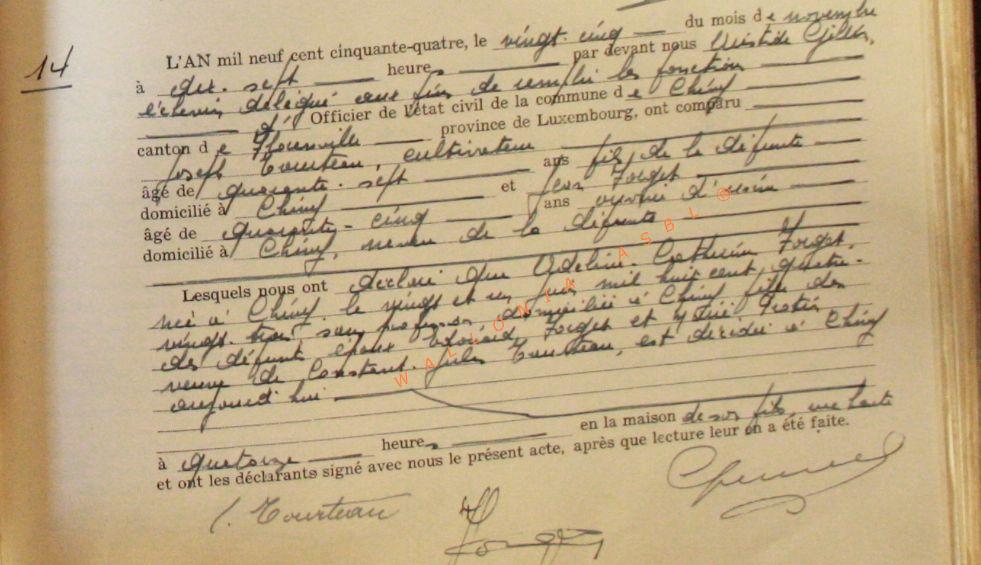 14
L'AN mil neuf cent cinquante-quatre, le vingt-cinq du mois de novembre
à dix-sept heures par devant nous Aristide Gilles,
échevin délégué aux fins de remplir les fonctions
d' Officier de l'état civil de la commune de Chiny
canton de Florenville province de Luxembourg, ont comparu
Joseph Tourteau, cultivateur
âgé de quarante-sept ans fils de la défunte
domicilié à Chiny et Jean Forget
âgé de quarante-cinq ans ouvrier d'usine
domicilié à Chiny, neveu de la défunte
Lesquels nous ont déclaré que Adeline-Catherine Forget,
née à Chiny le vingt et un juin mil huit cent quatre-
vingt-trois sans profession domiciliée à Chiny fille des
défunts époux Edouard Forget et
veuve de Constant-Jules Tourteau, est décédée à Chiny
aujourd'hui
à quatorze heures en la maison de son fils, rue haute
et ont les déclarants signé avec nous le présent acte, après que lecture leur en a été faite.
J. Tourteau
Forget
WALLONIA ASBL ®